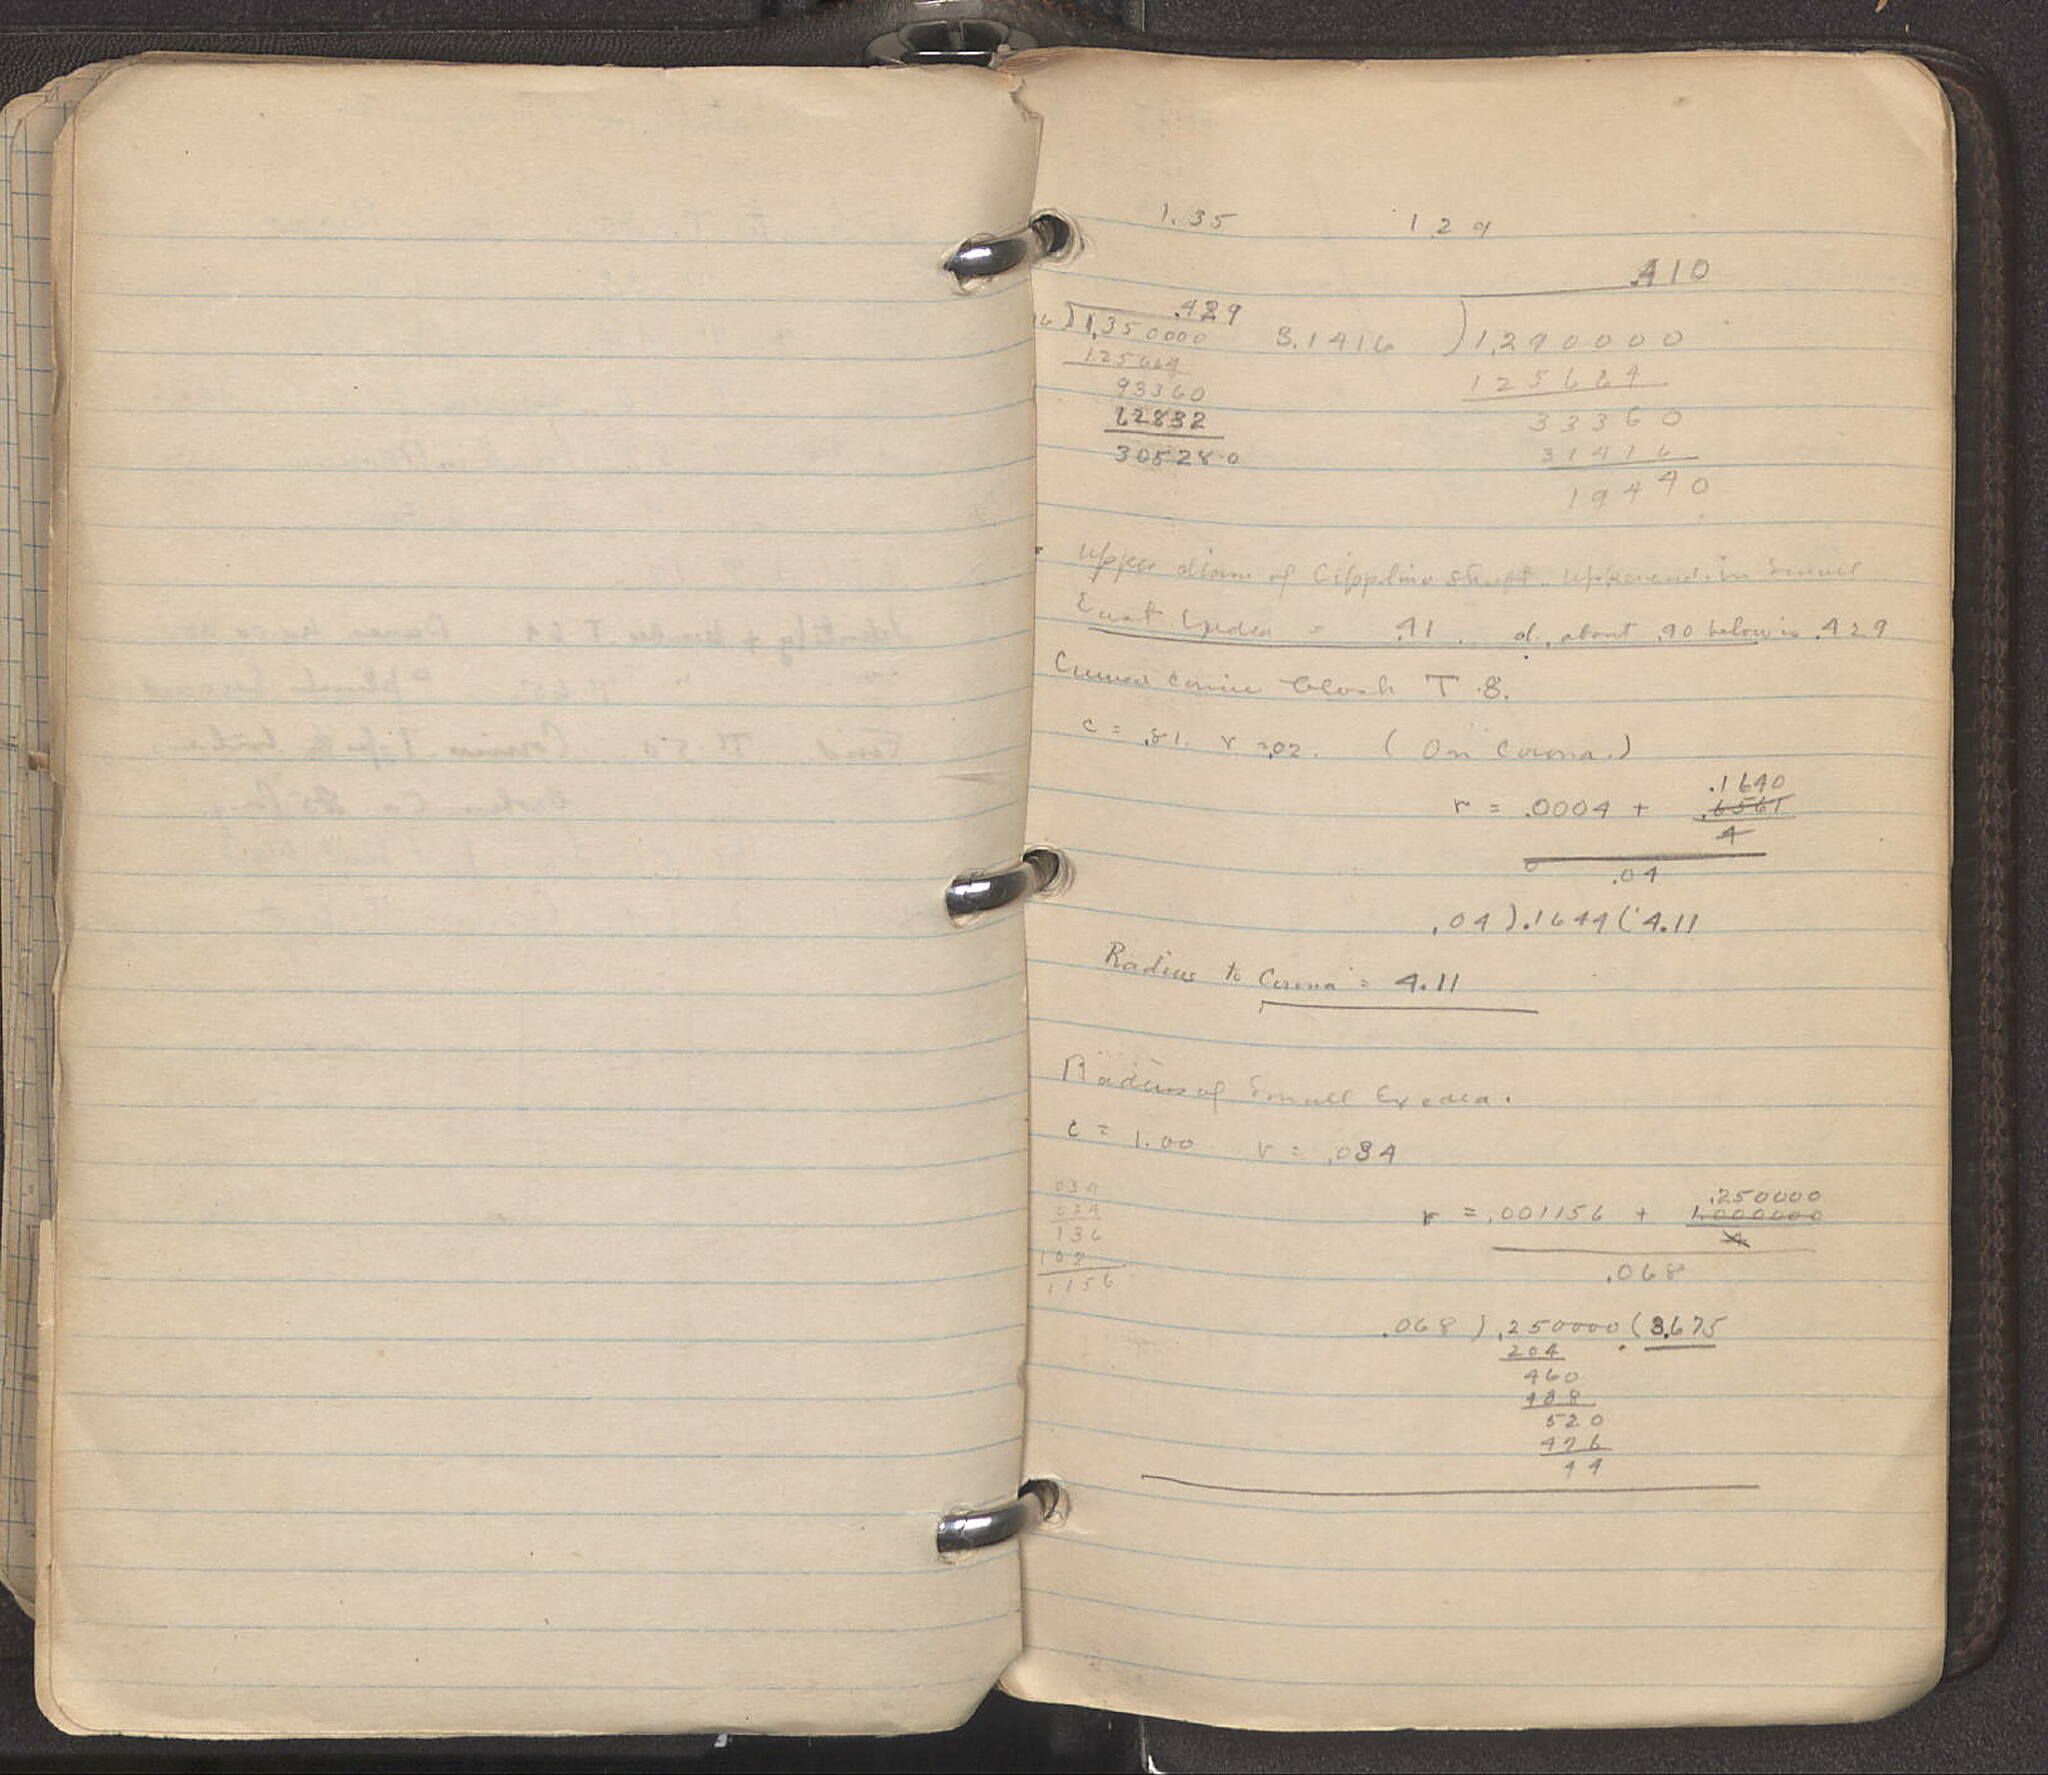 1.35 1 2 9
.410
.429
16 ) 1,350000 3.1416 ) 1,290000
125664 125664
93360 33360
62832 31416
305280 19440
Upper diam of Cippolino shaft. upper end. in Small
East Exedra = .41 d. about .90 below is .429
Curved cornice block T 8.
c = .81. r = .02. ( On Corona.)
.1640
r = .0004 + .6561
4
.04
.04 ) .1644 ( 4.11
Radius to Corona = 4.11
Radius of Small Exedra.
c = 1.00 r = .034
034 .250000
034 r = .001156 + 1.000000
136 4
102 .068
1156
.068 ) .250000 ( 3.675
204
460
408
520
476
44